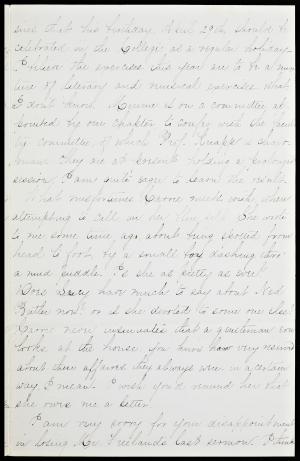 sires that his birthday, April 29th, should be
celebrated in the College as a regular holiday.
I believe the exercises this year are to be a mix-
ture of literary and musical exercises what
I don't know. Minnie is on a committee ap-
pointed by our chapter to confer with the facul-
ty committee, of which Prof. Knapp is chair-
man. They are at present holding a prolonged
session, I am quite eager to learn the result.
What misfortunes Carrie meets with, when
attempting to call in her blue silk. She wrote
to me some time ago about being spotted from
head to foot, by a small boy dashing thro'
a mud puddle. Is she as pretty as ever?
Does Lucy have much to say about Ned
now? or is she devoted to some one else?
Carrie never insinuates that a gentleman even
looks at the house, you know how very reserved
about their affairs they always were in a certain
way I mean. I wish you'd remind her that
she owes me a letter.
I am very sorry for your disappointment
in losing Mr. Freeland's last sermon. I think